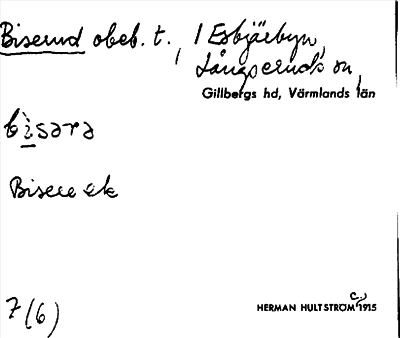 Biserud obeb. t., 1 Esbjärbyn,
Långseruds sn,
Gillbergs hd, Värmlands län
bìsərə
Biseee ek
7(6)
HERMAN HULTSTRÖM c. 1915